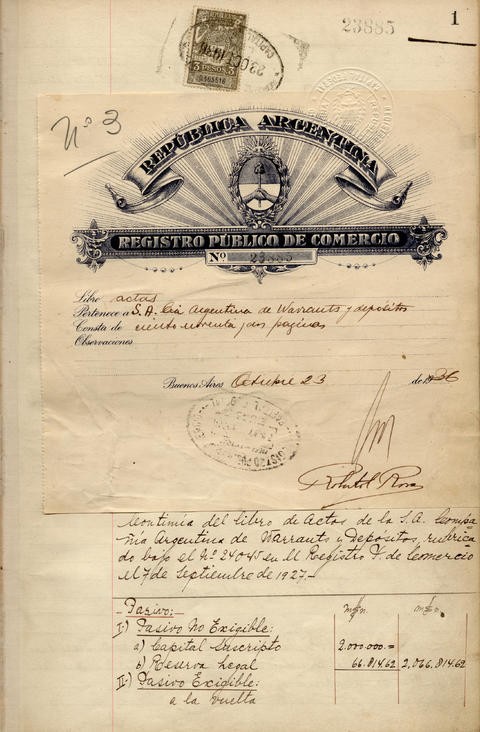 1
23885
3 PESOS 3
23 OCT 1936
Nº 3
REPÚBLICA ARGENTINA
REGISTRO PÚBLICO DE COMERCIO
Nº 23885
Libro actas
Pertenece a S. A. Cía Argentina de Warrants y depósitos
Consta de ciento noventa y dos paginas
Observaciones
Buenos Aires Octubre 23 de 1936
Continúa del libro de Actas de la S.A. Compa
ñía Argentina de Warrants y Depósitos, rubrica
do bajo el Nº 24045 en el Registro P. de Comercio
el 7 de Septiembre de 1927.-
-Pasivo:-
m$n. m$n.
I-) Pasivo No Exigible:
a) Capital Suscripto 2.000.000.=
b) Reserva Legal 66.814.62 2.066.814.62
II-) Pasivo Exigible:
a la vuelta